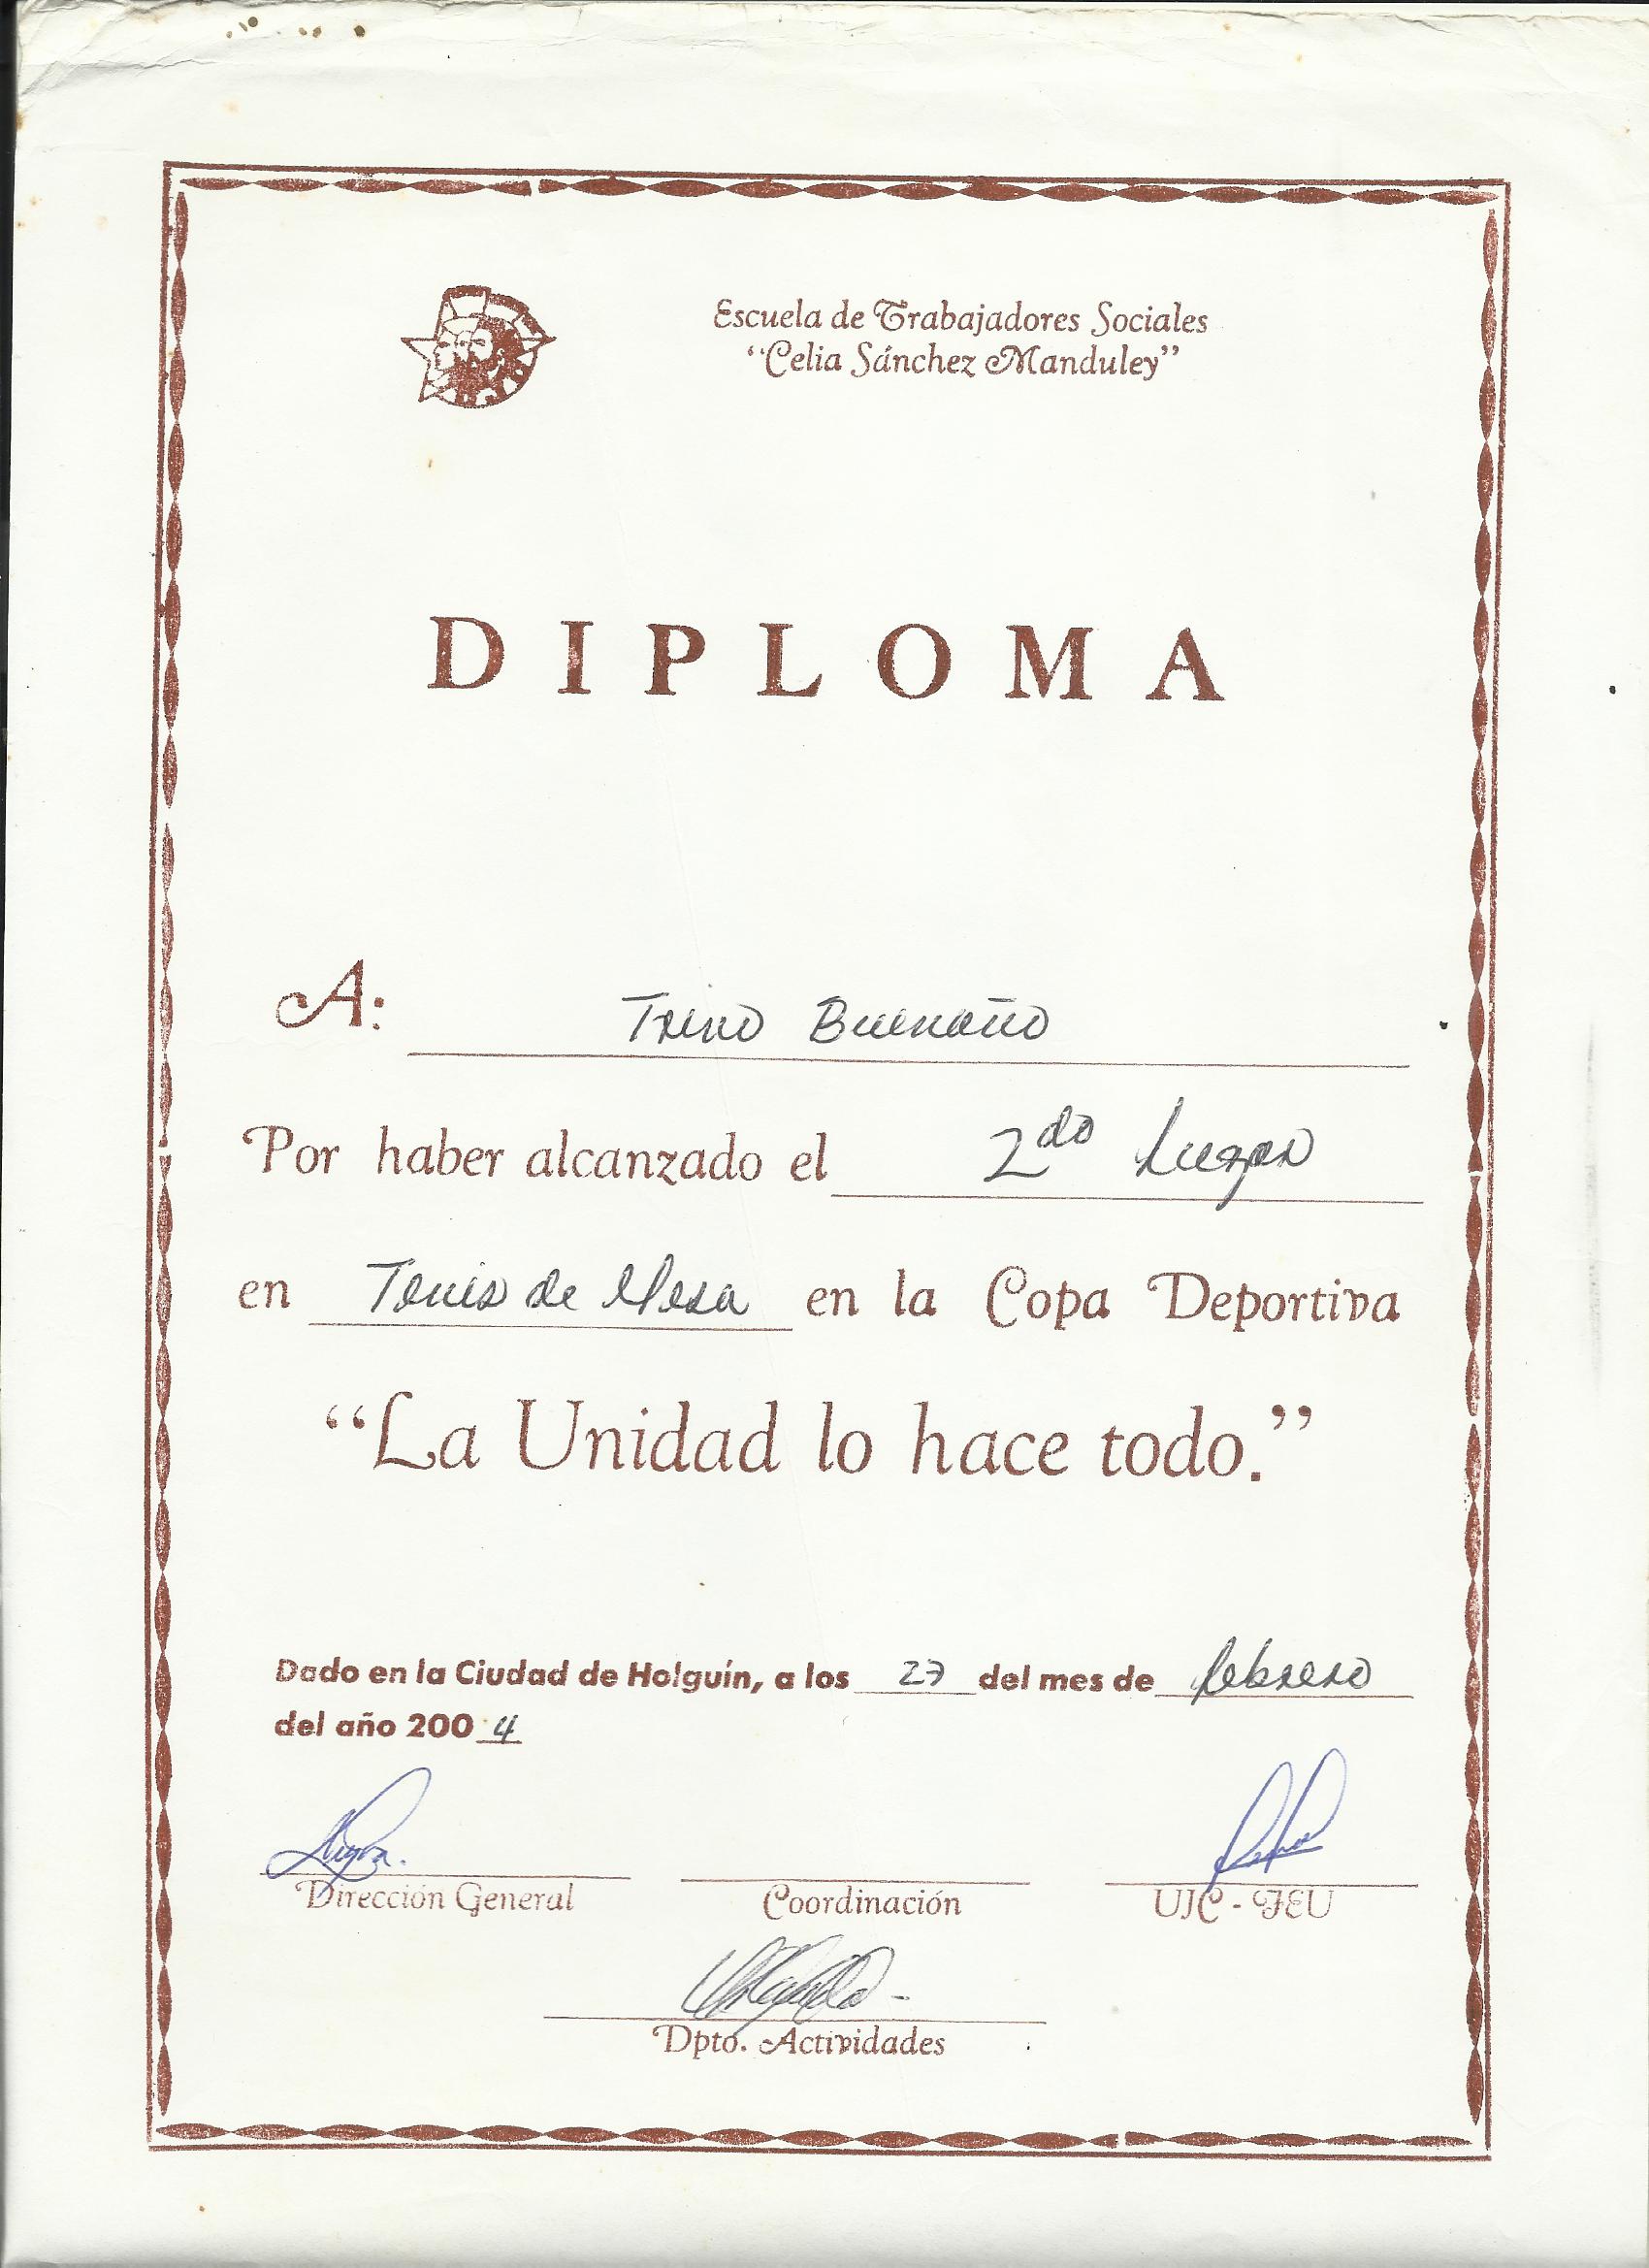 Escuela de Trabajadores Sociales
“Celia Sánchez Manduley”
DIPLOMA
A: Trino Buenaño
Por haber alcanzado el 2do lugar
en Tenis de Mesa en la Copa Deportiva
“La Unidad lo hace todo.”
Dado en la Ciudad de Holguín, a los 27 del mes de febrero
del año 2004
Dirección General Coordinación UJC - FEU
Dpto. Actividades